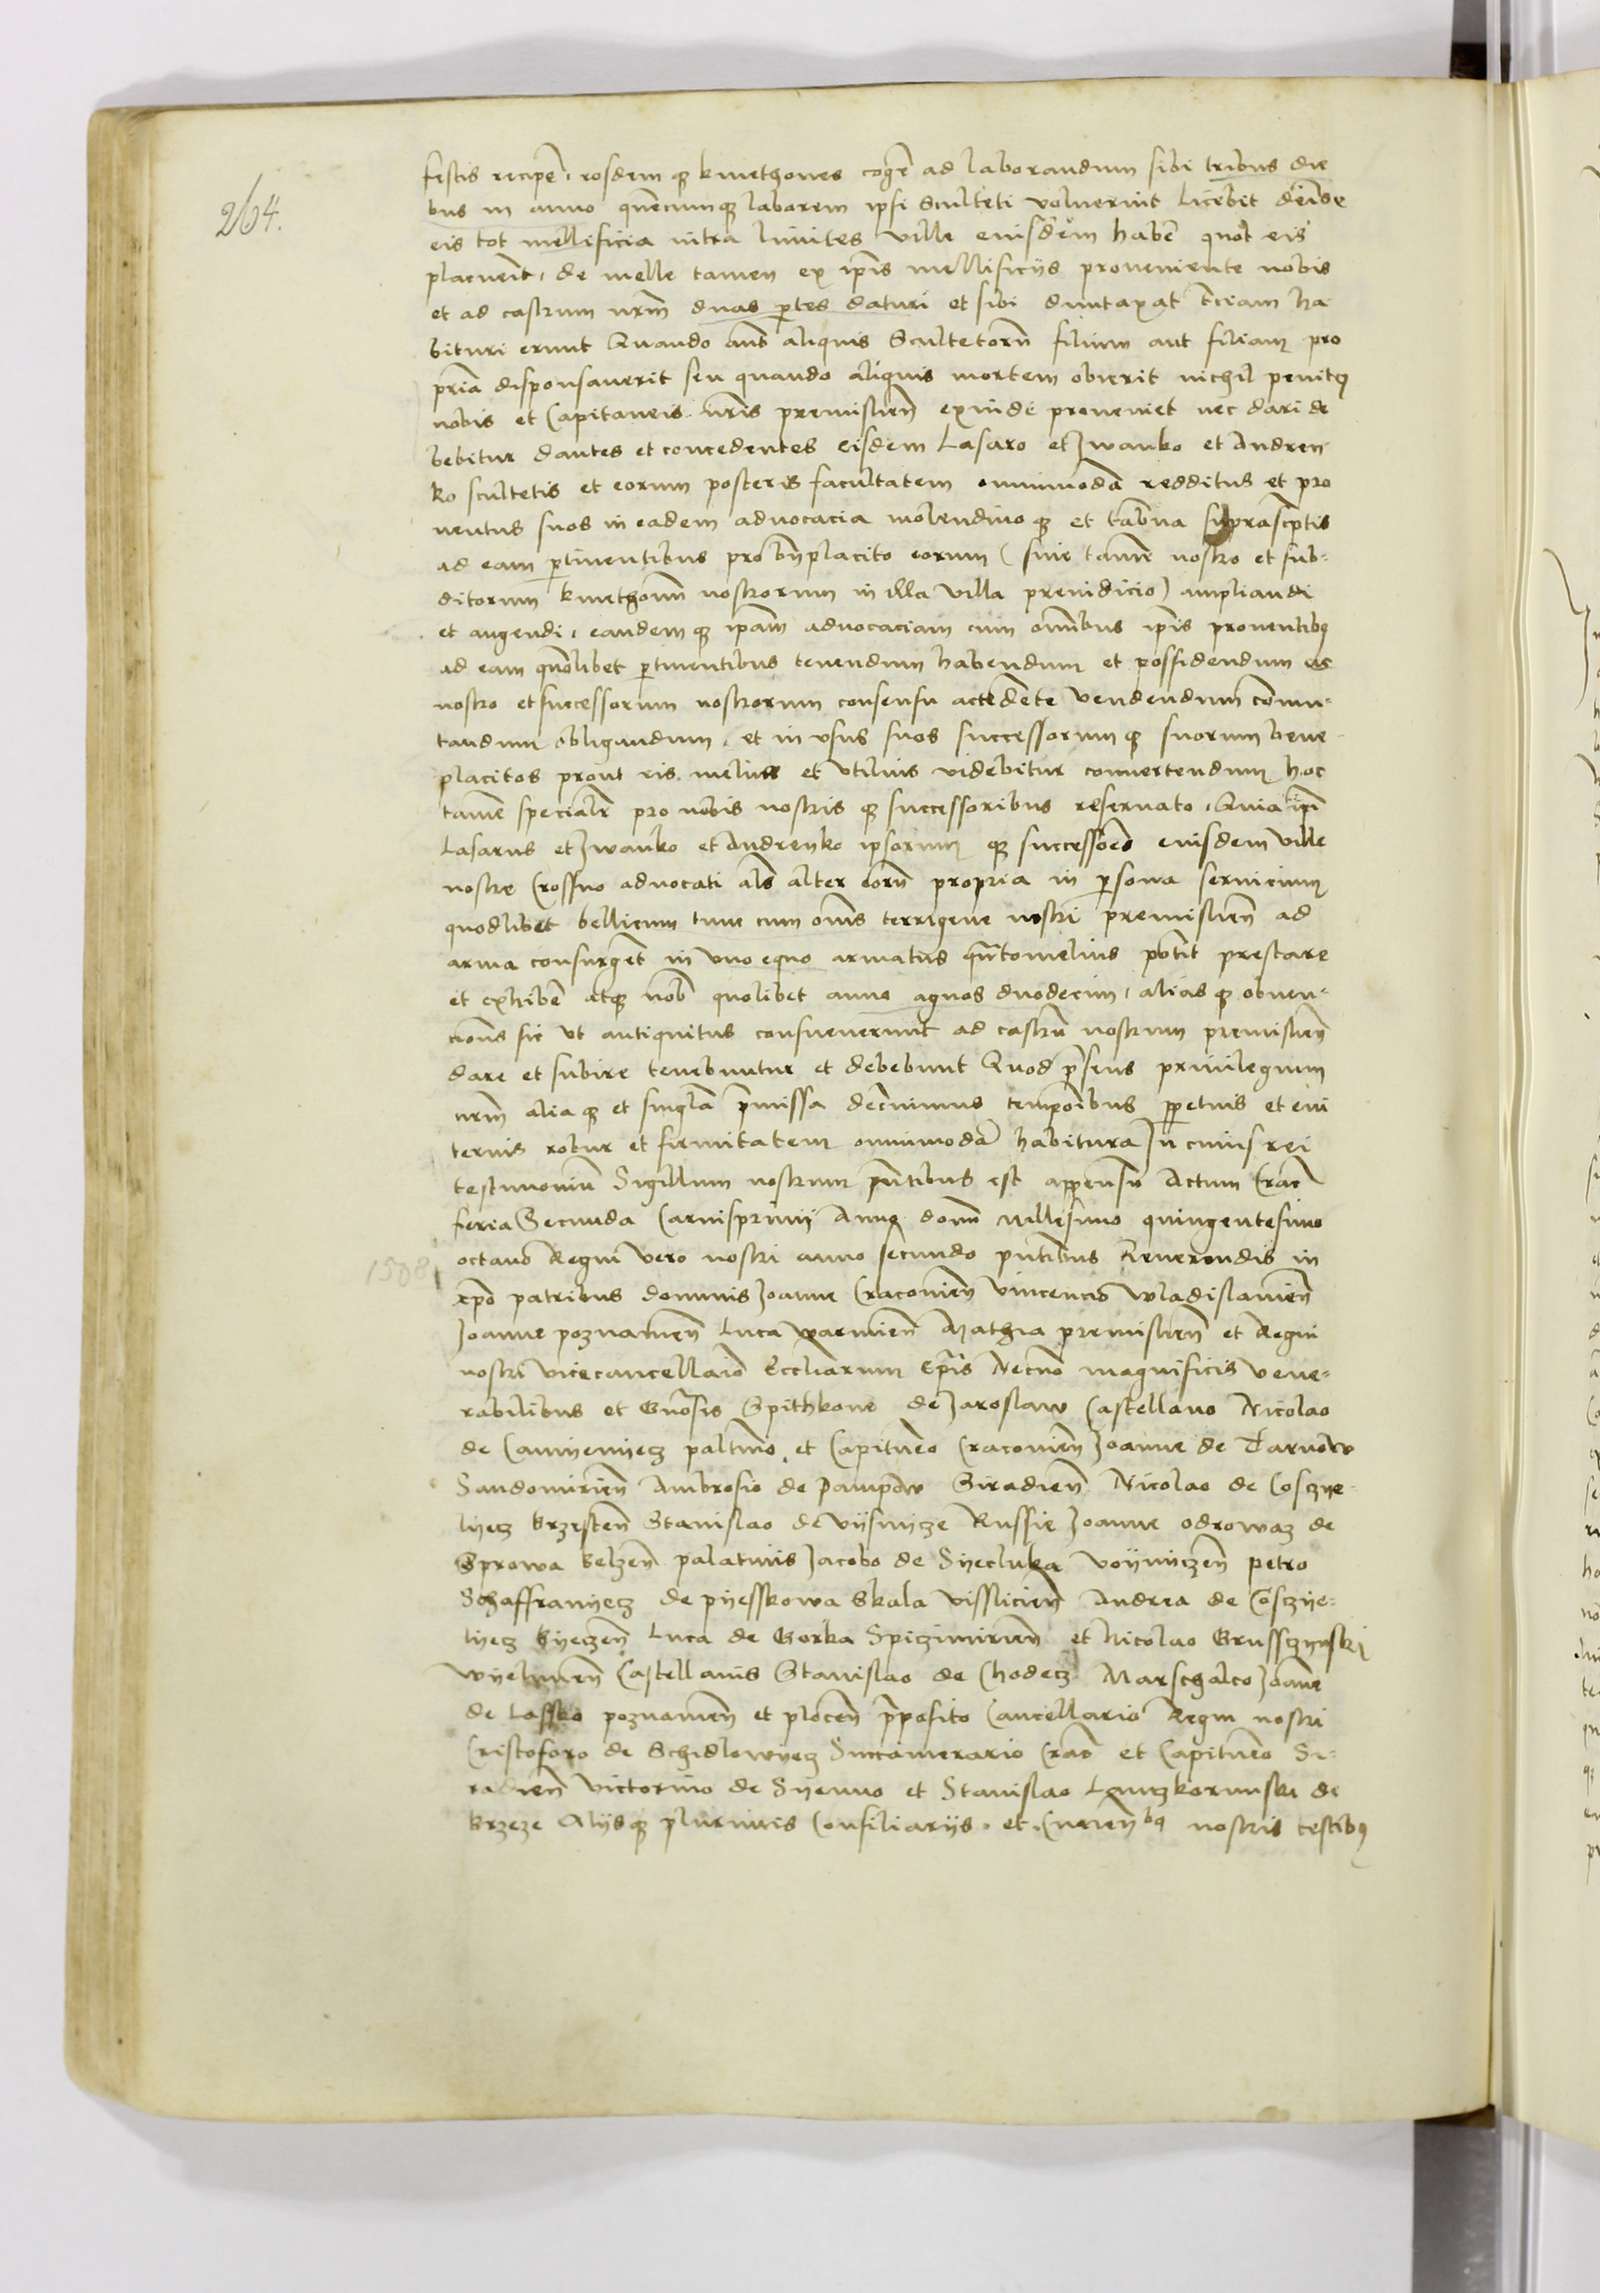 264.
festis recipe. eosdem q kmethones cogē ad laborandum sibi tribus die
bus in anno quēcumq laborem ipsi Sculteti voluerint Licebit deinde
eis tot mellificia intra limites ville eiusdem habē quot eis
placuerit, de melle tamen ex ipīs mellificijs proveniente nobis
et ad castrum nrm duas ptes daturi et sibi duntaxat tciam ha
bituri erunt Quando aut aliquis Scultetorū filium aut filiam pro
priā disponsaverit seu quando aliquis mortem obierit nichil penitq
nobis et Capitaneis nris premislien exinde proveniet nec dari de
bebitur dantes et concedentes eisdem Lasaro et Jwanko et Andren
ko scultetis et eorum posteris facultatem omnimodā redditus et pro
uentus suos in eadem aduocacia molendino q et tabna suprascptis
ad eam ptinentibus pro bnplacito eorum (sine tamē nostro et sub-
ditorum kmethonū nostrorum in illa villa preiudicio) ampliandi
et augendi, eandem q ipam aduocaciam cum omibus ipis prouentibq
ad eam qmolibet ptinentibus tenendum habendum et possidendum ac
nostro et successorum nostrorum consensu accedēte vendendum cōmu-
tandum obligandum, et in vsus suos successorum q suorum bene
placitos prout eis melius et vtilius videbitur conuertendum hoc
tamē specialr pro nobis nostris q successoribus reseruato, Quia ipi
Lasarus et Jwanko et Andrenko ipsorum q successoēs eiusdem ville
nostre Crosno aduocati als alter eorū propria in psona seruicium
quodlibet bellicum tunc cum oms terrigene nostri premislien ad
arma consurgēt in vno equo armatus qntomelius poterit prestare
et exhibē atq nob quolibet anno agnos duodecim, alias q obuen-
cions sic vt antiquitus consueuerunt ad castrū nostrum premislien
dare et subire tenebuntur et debebunt Quod psens priuilegium
nrm alia q et singla pmissa decnimus temporibus ppetuis et eui
ternis robur et firmitatem omnimodā habitura In cuius rei
testimoniū Sigillum nostrum pntibus est appensū Actum Crac
feria Secunda Carnispriuij Anno domi Millesimo quingentesimo
octauo Regni vero nostri anno secundo pntibus Reuerendis in
1508
xpo patribus dominis Joanne Cracouien Vincencio Wladislauien
Joanne poznanien Luca warmien Mathia premislien et Regni
nostri vicecancellario Eccliarum Epis Necnō magnificis vene-
rabilibus et Gnosis Spithkone de Jaroslaw Castellano Nicolao
de Camyenyecz paltino et Capitneo Cracouien Joanne de Tarnow
Sandomirien Ambrosio de pampow Siradien Nicolao de Cosczye-
lyecz brzesten Stanislao de vysnycze Russie Joanne odrowaz de
Sprowa belzen palatinis Jacobo de Syecluka voynyczen petro
Schaffranyecz de pyesskowa Skala vislicien Andrea de Cosczye-
lyecz byeczen Luca de Gorka Spiczimirien et Nicolao Grussczynski
wyelunen Castellanis Stanislao de Chodecz Marschalco Joanne
de Lassko poznanien et plocen pposito Cancellario Regni nostri
Cristoforo de Schidlowyecz Succamerario Crac et Capitneo Si-
radien victorino de Syenno et Stanislao Lanczkorunski de
brzeze Alijsq plurimis Consiliarijs et Curienbq nostris testibq